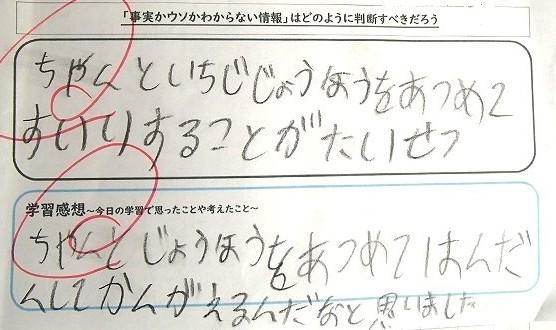 「事実かウソかわからない情報」はどのように判断すべきだろう
ちゃんといちじじょうほうをあつめて
すいりすることがたいせつ
学習感想~今日の学習で思ったことや考えたこと~
ちゃんとじょうほうをあつめてはんだ
んしてかんがえるんだなと思いました